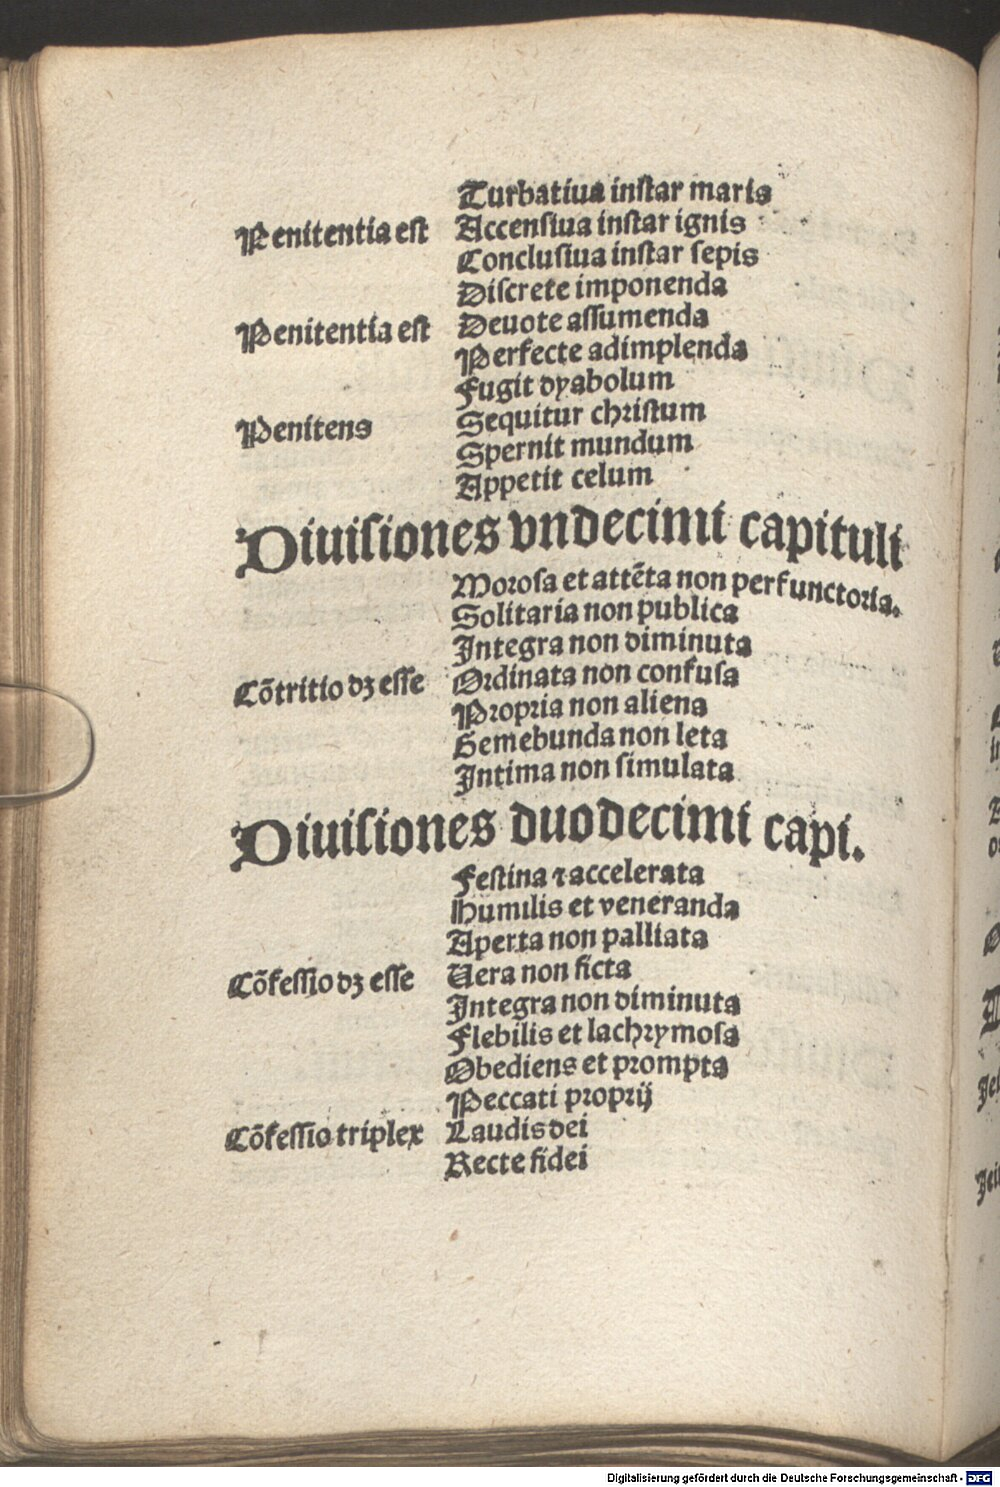 Turbatiua instar maris
Penitentia est Accensiua instar ignis
Conclusiua instar sepis
Discrete imponenda
Penitentia est Deuote assumenda
Perfecte adimplenda
Fugit dyabolum
Penitens Sequitur christum
Spernit mundum
Appetit celum
Diuisiones vndecimi capituli
Morosa et attēta non perfunctoria.
Solitaria non publica
Integra non diminuta
Cōtritio dꝫ esse Ordinata non confusa
Propria non aliena
Gemebunda non leta
Intima non simulata
Diuisiones duodecimi capi.
Festina ⁊ accelerata
Humilis et veneranda
Aperta non palliata
Cōfessio dꝫ esse Uera non ficta
Integra non diminuta
Flebilis et lachrymosa
Obediens et prompta
Peccati proprij
Cōfessio triplex Laudis dei
Recte fidei
Digitalisierung gefördert durch die Deutsche Forschungsgemeinschaft - DFG